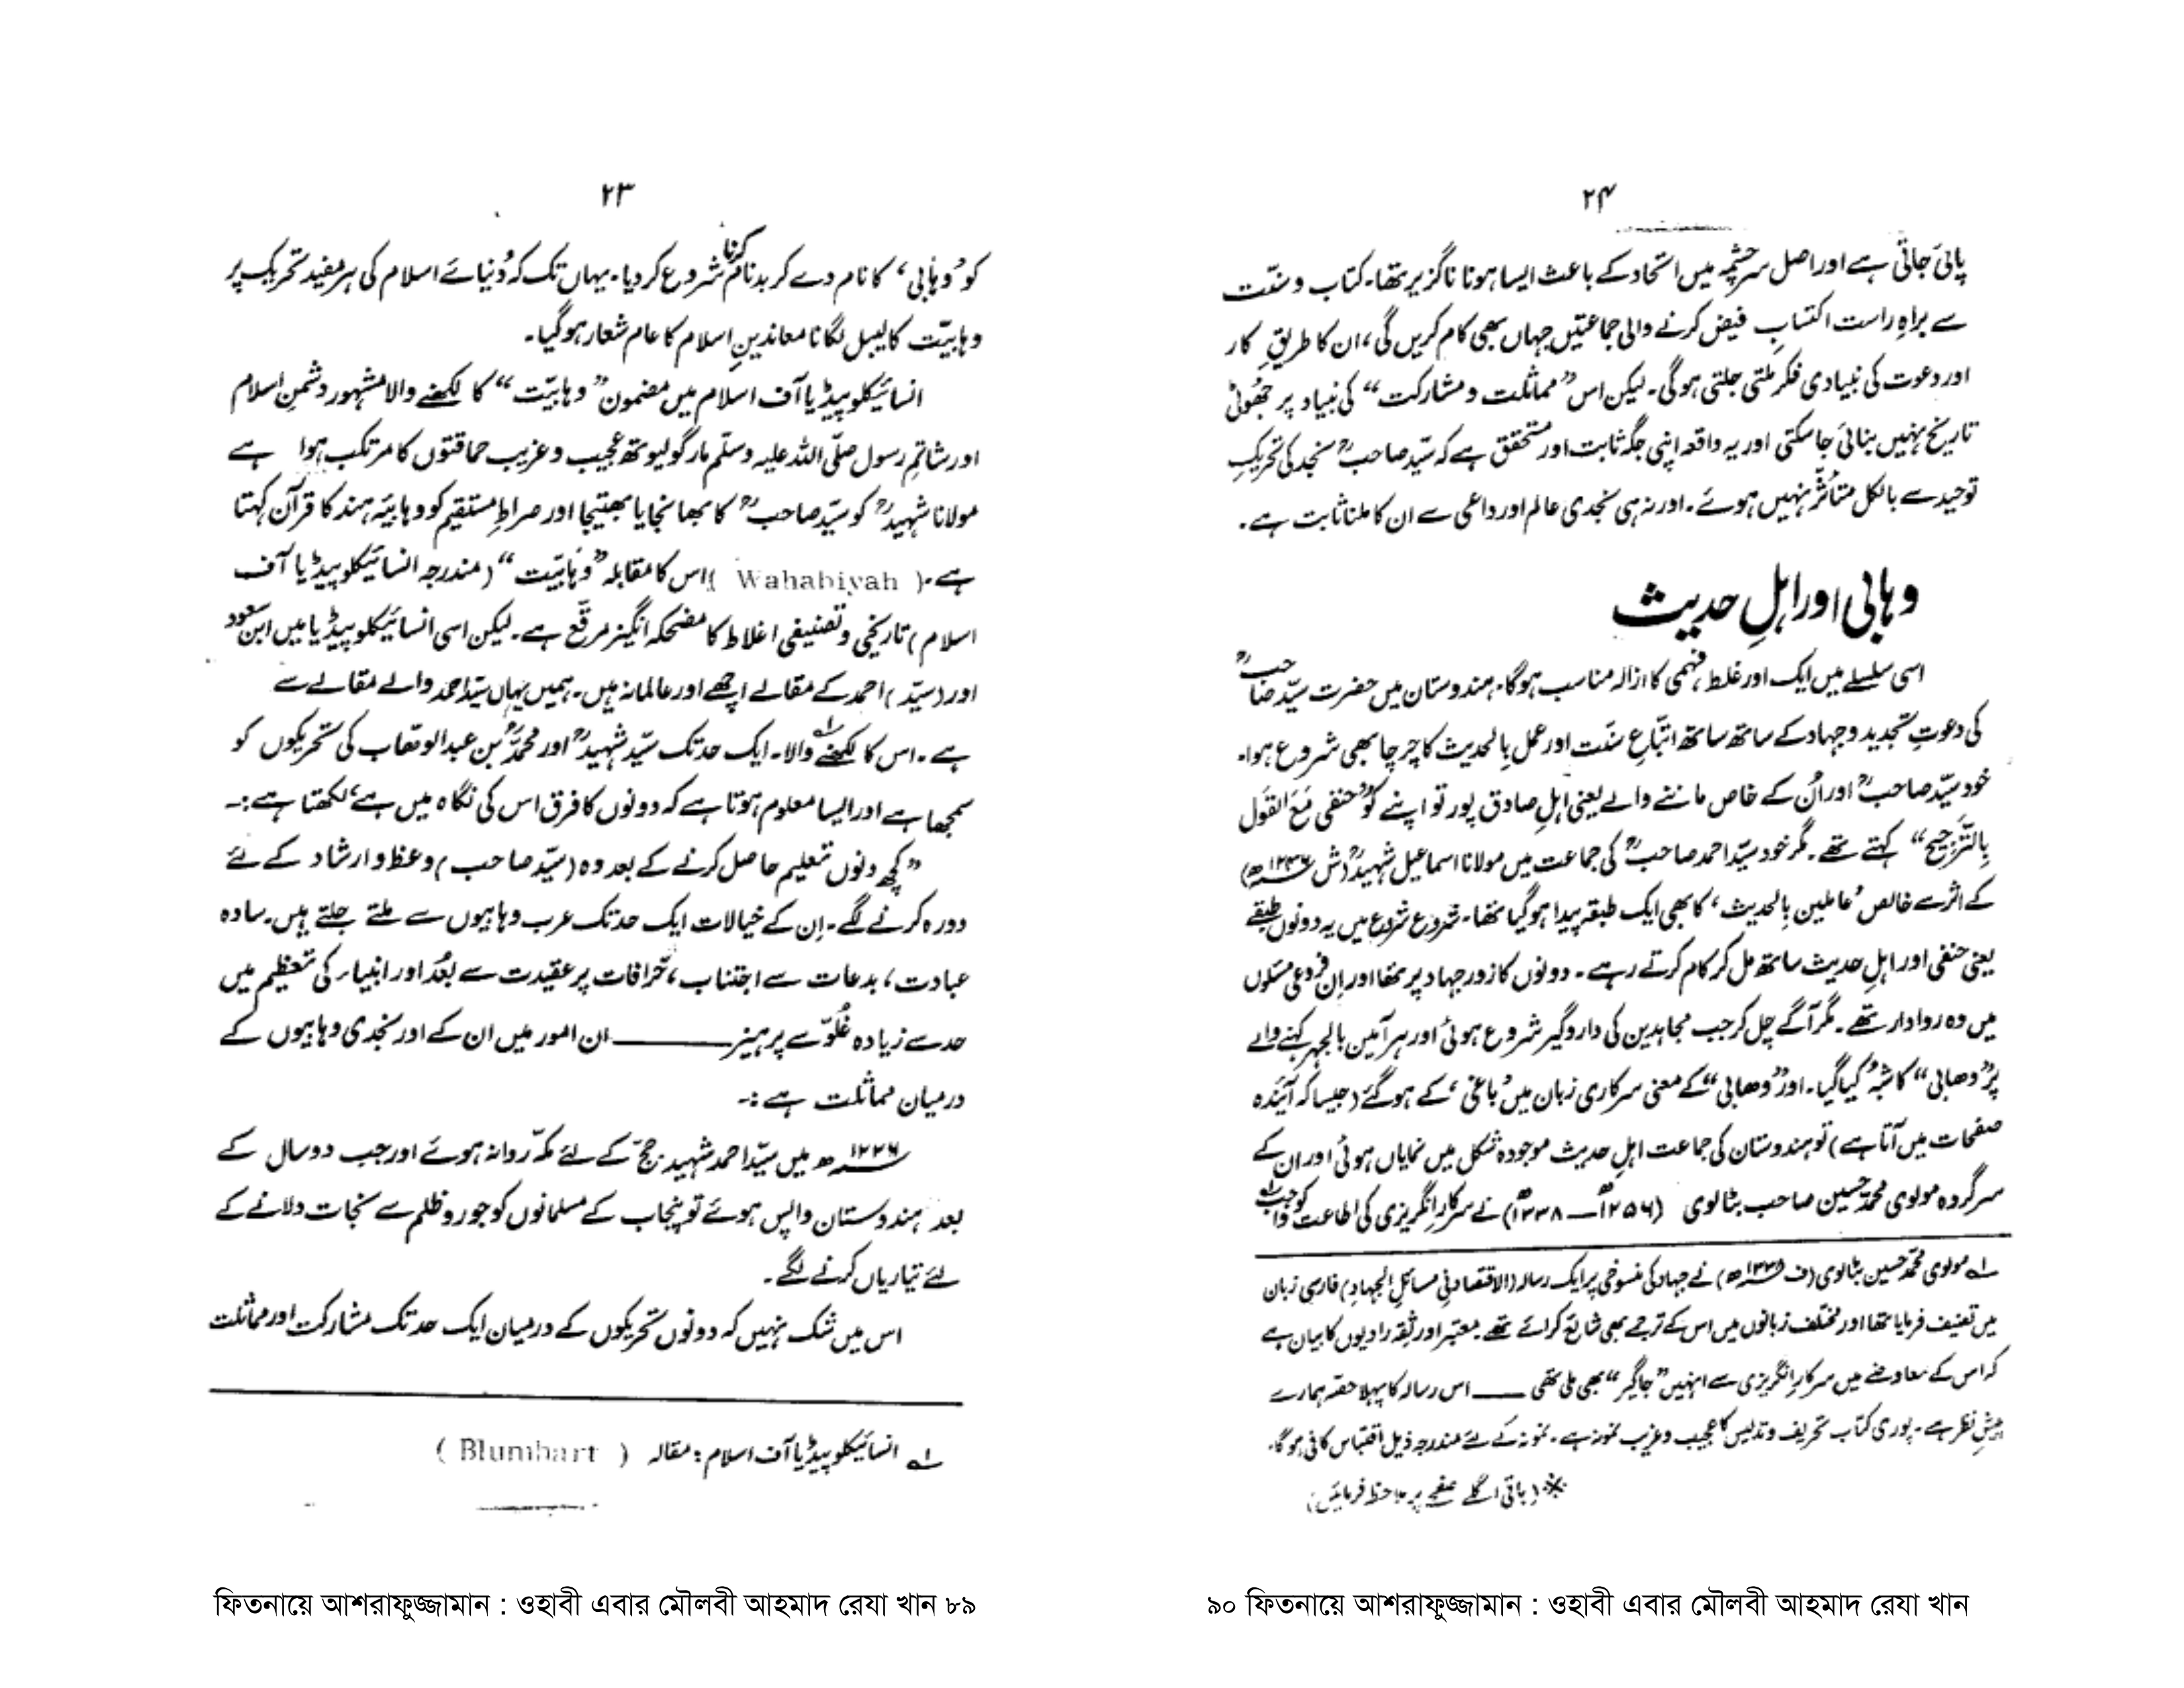 ۲۳
کو ’وہابی‘ کا نام دے کر بدنام کرنا شروع کر دیا۔ یہاں تک کہ دُنیائے اسلام کی ہر مفید تحریک پر
وہابیّت کا لیبل لگانا معاندینِ اسلام کا عام شعار ہو گیا۔
انسائیکلوپیڈیا آف اسلام میں مضمون ”وہابیّت“ کا لکھنے والا مشہور دشمنِ اسلام
اور شاتمِ رسول صلّی اللہ علیہ وسلّم مارگولیوتھ عجیب و غریب حماقتوں کا مرتکب ہوا ہے
مولانا شہیدؒ کو سیّد صاحبؒ کا بھانجا یا بھتیجا اور صراطِ مستقیم کو وہابیّہ ہند کا قرآن کہتا
ہے۔ ( Wahabiyah ) اس کا مقابلہ ”وہابیّت“ (مندرجہ انسائیکلوپیڈیا آف
اسلام) تاریخی و تصنیفی اغلاط کا مضحکہ انگیز مرقّع ہے۔ لیکن اسی انسائیکلوپیڈیا میں ابن سعود
اور (سیّد) احمد کے مقالے اچھے اور عالمانہ ہیں۔ ہمیں یہاں سیّد احمد والے مقالے سے
ہے۔ اس کا لکھنے والا۱؎۔ ایک حد تک سیّد شہیدؒ اور محمدؒ بن عبدالوھاب کی تحریکوں کو
سمجھا ہے اور ایسا معلوم ہوتا ہے کہ دونوں کا فرق اس کی نگاہ میں ہے، لکھتا ہے:۔
”کچھ دنوں تعلیم حاصل کرنے کے بعد وہ (سیّد صاحب) وعظ و ارشاد کے لئے
دورہ کرنے لگے۔ اِن کے خیالات ایک حد تک عرب وہابیوں سے ملتے جلتے ہیں۔ سادہ
عبادت، بدعات سے اجتناب، خرافات پر عقیدت سے بُعد اور انبیاء کی تعظیم میں
حد سے زیادہ غُلوّ سے پرہیز ——— ان امور میں ان کے اور نجدی وہابیوں کے
درمیان مماثلت ہے:۔
۱۲۳۶ھ میں سیّد احمد شہید حجّ کے لئے مکّہ روانہ ہوئے اور جب دو سال کے
بعد ہندوستان واپس ہوئے تو پنجاب کے مسلمانوں کو جور و ظلم سے نجات دلانے کے
لئے تیاریاں کرنے لگے۔
اس میں شک نہیں کہ دونوں تحریکوں کے درمیان ایک حد تک مشارکت اور مماثلت
۱؎ انسائیکلوپیڈیا آف اسلام: مقالہ ( Blumhart )
ফিতনায়ে আশরাফুজ্জামান : ওহাবী এবার মৌলবী আহমাদ রেযা খান ৮৯
۲۴
پائی جاتی ہے اور اصل سرچشمہ میں اتحاد کے باعث ایسا ہونا ناگزیر تھا۔ کتاب و سنّت
سے براہِ راست اکتسابِ فیض کرنے والی جماعتیں جہاں بھی کام کریں گی، ان کا طریقِ کار
اور دعوت کی بنیادی فکر ملتی جلتی ہو گی۔ لیکن اس ”مماثلت و مشارکت“ کی بنیاد پر جھُوٹی
تاریخ نہیں بنائی جا سکتی اور یہ واقعہ اپنی جگہ ثابت اور متحقق ہے کہ سیّد صاحبؒ نجد کی تحریکِ
توحید سے بالکل متاثّر نہیں ہوئے۔ اور نہ ہی نجدی عالم اور داعی سے ان کا ملنا ثابت ہے۔
وہابی اور اہلِ حدیث
اسی سلسلے میں ایک اور غلط فہمی کا ازالہ مناسب ہو گا۔ ہندوستان میں حضرت سیّد صاحبؒ
کی دعوتِ تجدید و جہاد کے ساتھ ساتھ اتباعِ سنّت اور عمل بالحدیث کا چرچا بھی شروع ہوا۔
خود سیّد صاحبؒ اور اُن کے خاص ماننے والے یعنی اہلِ صادق پور تو اپنے کو ”حنفی مَعَ القَول
بِالتَّرجِیح“ کہتے تھے۔ مگر خود سیّد احمد صاحبؒ کی جماعت میں مولانا اسماعیل شہیدؒ (ش ۱۲۴۶ھ)
کے اثر سے خالص ’عاملین بالحدیث‘ کا بھی ایک طبقہ پیدا ہو گیا تھا۔ شروع شروع میں یہ دونوں طبقے
یعنی حنفی اور اہلِ حدیث ساتھ مل کر کام کرتے رہے۔ دونوں کا زور جہاد پر تھا اور اِن فروعی مسئلوں
میں وہ روادار تھے۔ مگر آگے چل کر جب مجاہدین کی داروگیر شروع ہوئی اور ہر آمین بالجہر کہنے والے
پر ”وھابی“ کا شبہ کیا گیا۔ اور ”وھابی“ کے معنی سرکاری زبان میں ’باغی‘ کے ہو گئے (جیسا کہ آئندہ
صفحات میں آتا ہے) تو ہندوستان کی جماعت اہلِ حدیث موجودہ شکل میں نمایاں ہوئی اور ان کے
سرگردہ مولوی محمد حسین صاحب بٹالوی (۱۲۵۶ھ — ۱۳۳۸ھ) نے سرکارِ انگریزی کی اطاعت کو واجب۱؎
۱؎ مولوی محمد حسین بٹالوی (ف ۱۳۳۸ھ) نے جہاد کی منسوخی پر ایک رسالہ (الاقتصاد فی مسائل الجہاد) فارسی زبان
میں تصنیف فرمایا تھا اور مختلف زبانوں میں اس کے ترجمے بھی شائع کرائے تھے۔ معتبر اور ثقہ راویوں کا بیان ہے
کہ اس کے معاوضے میں سرکارِ انگریزی سے انہیں ”جاگیر“ بھی ملی تھی —— اس رسالہ کا پہلا حصّہ ہمارے
پیشِ نظر ہے۔ پوری کتاب تحریف و تدلیس کا عجیب و غریب نمونہ ہے۔ نمونہ کے لئے مندرجہ ذیل اقتباس کافی ہو گا۔
※ (باقی اگلے صفحے پر ملاحظہ فرمائیں)
৯০ ফিতনায়ে আশরাফুজ্জামান : ওহাবী এবার মৌলবী আহমাদ রেযা খান